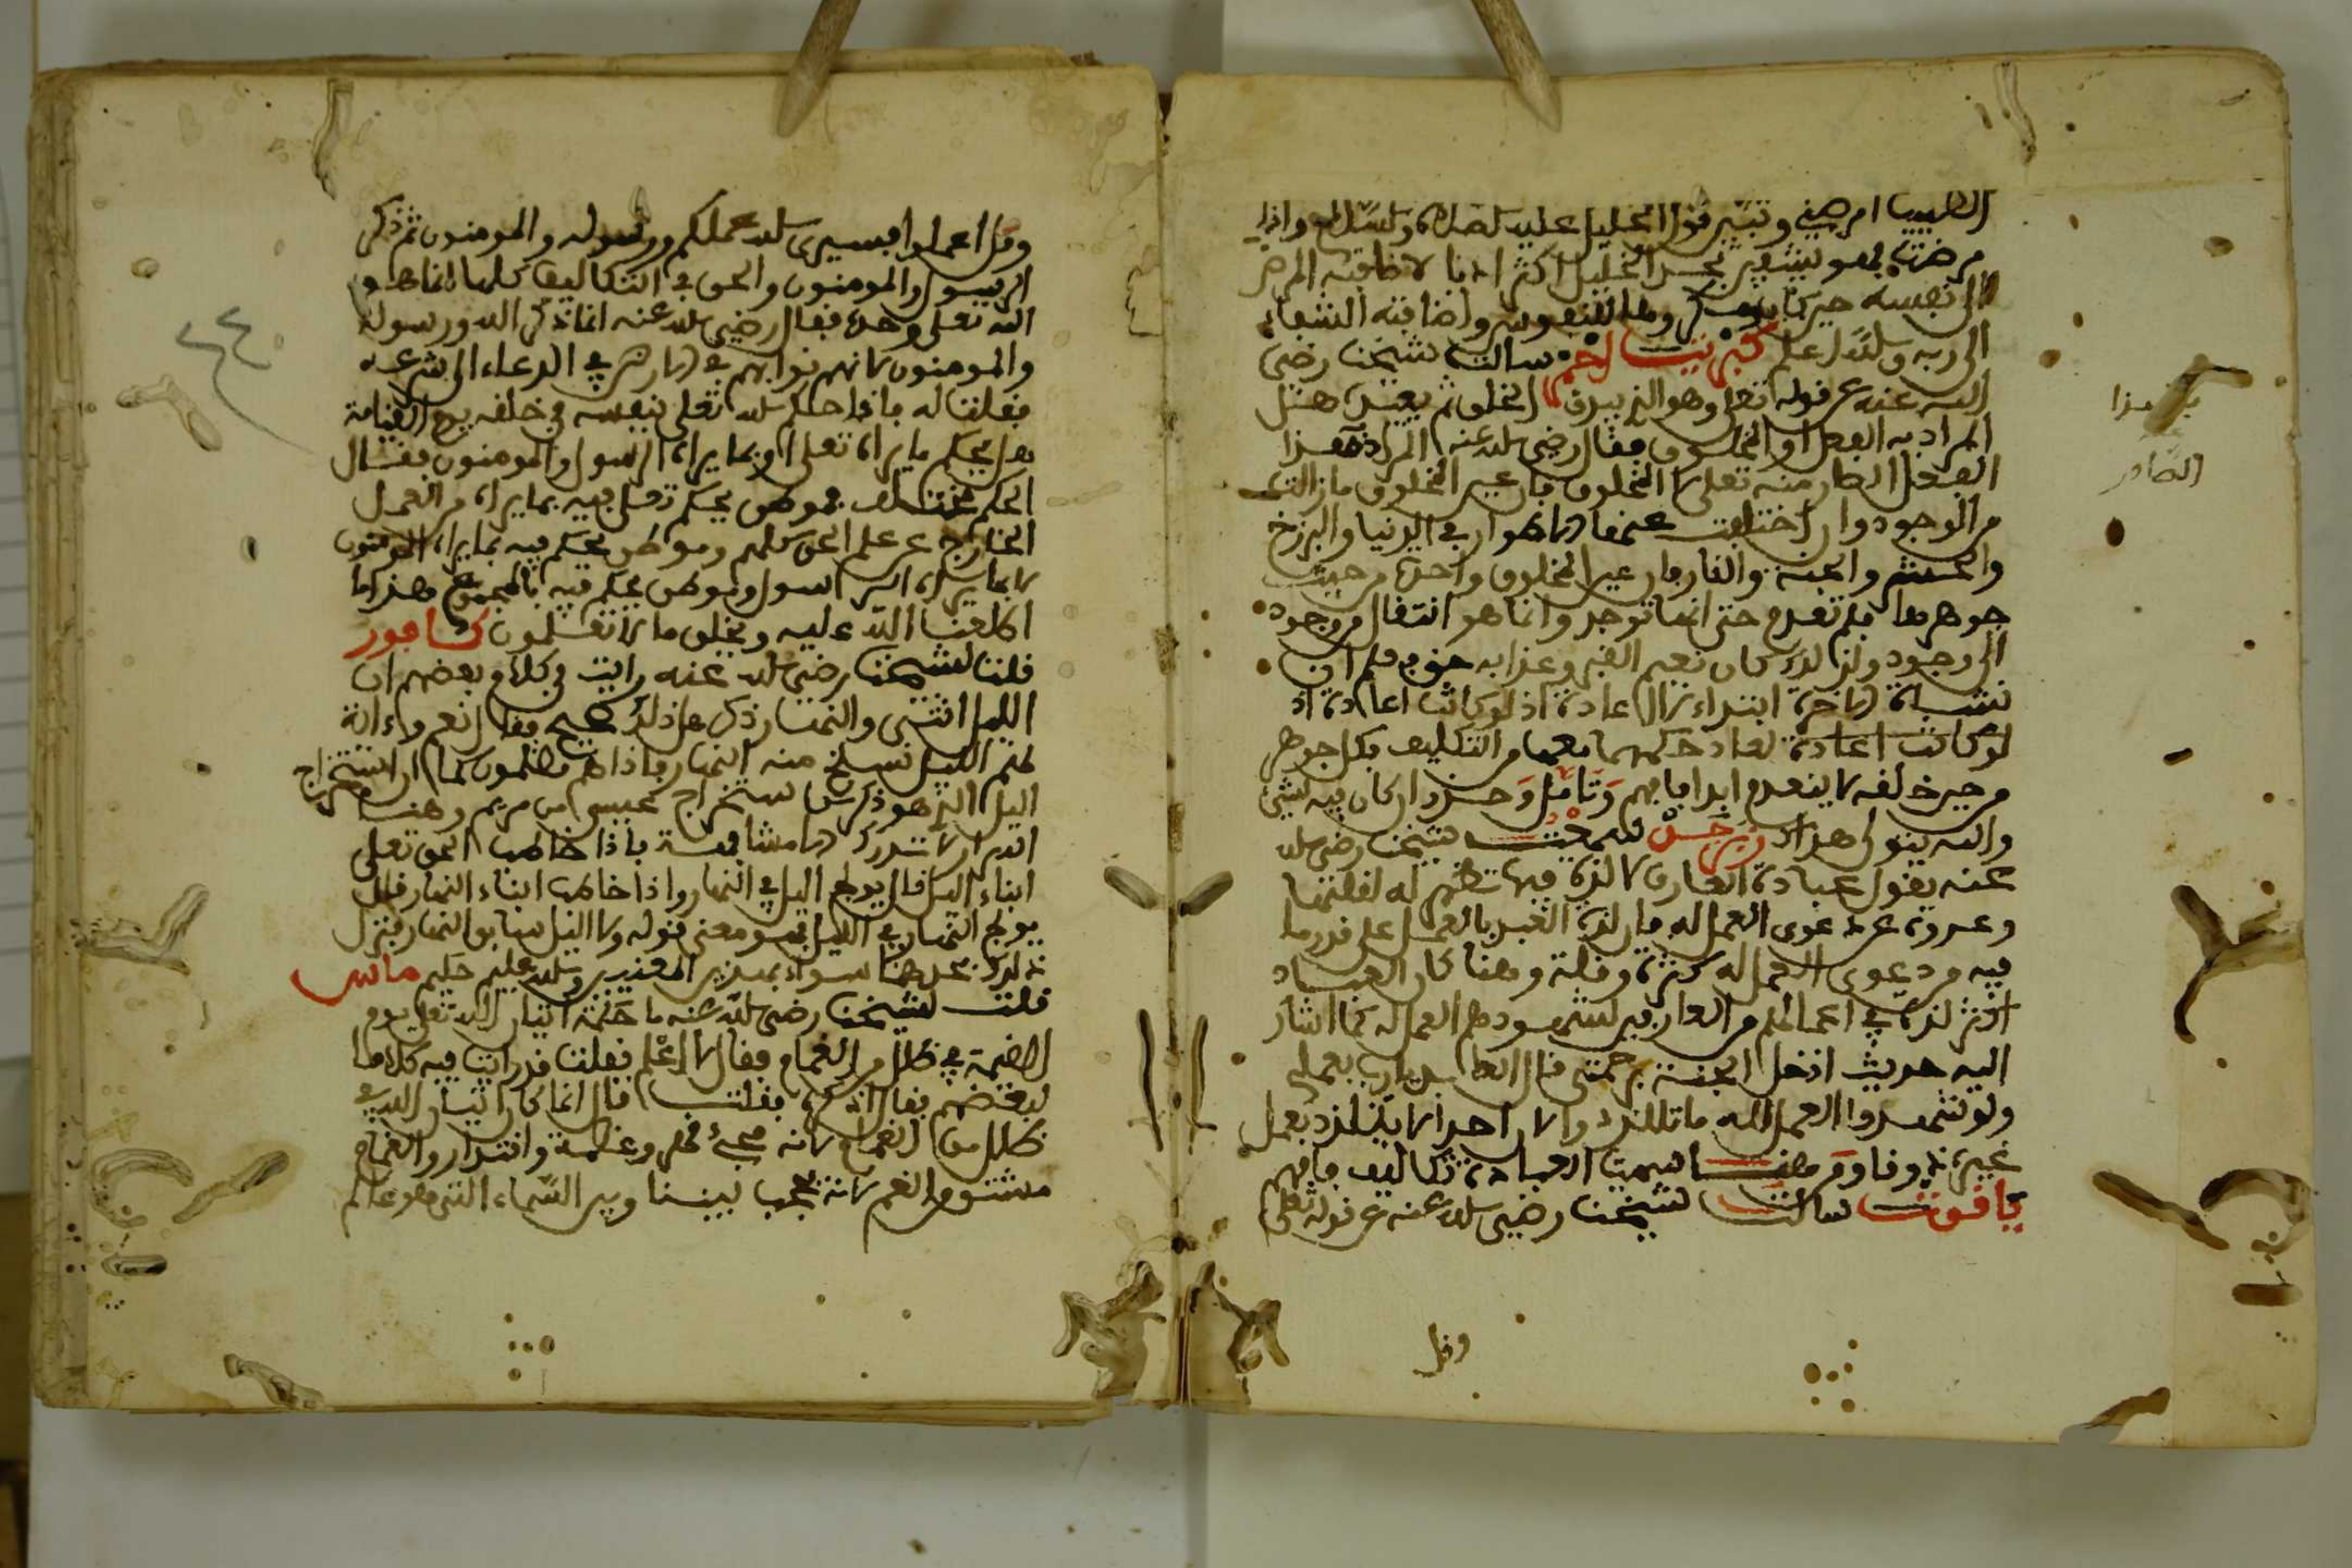 الطبيب امرضني وتبيّن قول الخليل عليه الصلاة والسلام واذا
مرضت فهو يشفين تجد الخليل اكثر ادبا لاضافته المرض
الى نفسه حين كان مكروها للنفوس واضافته الشفاء
الى ربه والله اعلم كبريت احمر سالت شيخنا رضي
الله عنه عن قوله تعلى وهو الذي يبدؤا الخلق ثم يعيده هل
المراد به الفعل او المخلوق فقال رضي الله عنه المراد بهذا
الفعل الصادر منه تعلى لا المخلوق فان عين المخلوق ما زالت
من الوجود وان اختلفت عنها الاطوار في الدنيا والبرزخ
والحشر والجنة والنار فان عين المخلوق واحدة من حيث
جوهرها فلم تعدم حتى انها توجد وانما هو انتقال من وجود
الى وجود ولذلك كان نعيم القبر وعذابه حق فعلم ان
نشأة الاخرة ابتداء لا اعادة اذ لو كانت اعادة اذ
لو كانت اعادة لعاد حكمها معها من التكليف فكل جوهر
من حين خلقه لا ينعدم ابدا فافهم وتأمل وحرر ان كان فيه شيء
والله يتولى هداك زبرجد سمعت شيخنا رضي الله
عنه يقول عبادة العارف لا لذة فيها تظهر له لغلبتها
وعروه عن دعوى العمل له فان لذة العبد بالعمل على قدر ما
فيه من دعوى العمل له كثرة وقلة وهنا كان العباد
اكثر لذة في اعمالهم من العارفين لشهودهم العمل له كما اشار
اليه حديث ادخل الجنة برحمتي قال العابد يا رب بعملي
ولو شهدوا العمل لله ما تلذذوا لان احدا لا يتلذذ بعمل
غيره ذوقا ومن هنا سميت العبادة تكاليف فافهم
ياقوت سالت شيخنا رضي الله عنه عن قوله تعلى
وقل
وقل اعملوا فسيرى الله عملكم ورسوله والمومنون ثم ذكر
الرسول والمومنون والحق في التكاليف كلها انما هو
الله تعلى وحده فقال رضي الله عنه انما ذكر الله ورسوله
والمومنون لانهم نوابهم في الارض في الدعاء الى شرعه
فقلت له فاذا حكم الله تعلى بنفسه في خلقه يوم القيامة
هل يحكم بما يراه تعلى او بما يراه الرسول والمومنون فقال
الحكم مختلف فموطن يحكم تعلى فيه بما يراه من العمل
الخارج عن علم الحق كلهم وموطن يحكم فيه بما يراه المومنون
لا بما يراه الرسول وموطن يحكم فيه بالمجموع هذا ما
اطلعنا الله عليه ويخلق ما لا تعلمون كافور
قلت لشيخنا رضي الله عنه رايت في كلام بعضهم ان
الليل انثى والنهار ذكر هل ذلك صحيح فقال نعم وءاية
لهم الليل نسلخ منه النهار فاذا هم مظلمون كما ان استخراج
اليل الذي هو ذكر من استخراج عيسى من مريم وهنا
اسرار لا تدرك الا مشافهة فاذا خاطب الحق تعلى
ابناء اليل قال يولج اليل في النهار واذا خاطب ابناء النهار قال
يولج النهار في الليل فهو معنى قوله ولا اليل سابق النهار فنزل
ذلك محلهما سواء بتقدير العزيز والله عليم حكيم ماس
قلت لشيخنا رضي الله عنه ما حكمة اتيان الله تعلى يوم
القيمة في ظلل من الغمام فقال لا اعلم فقلت قد رايت فيه كلاما
لبعضهم فقال اذكره فقلت قال انما كان اتيان الله في
ظلل من الغمام لانه مجيء قهر وعظمة واقتدار والغمام
مشتق من الغم لانه يحجب بيننا وبين السماء التي هو عالم